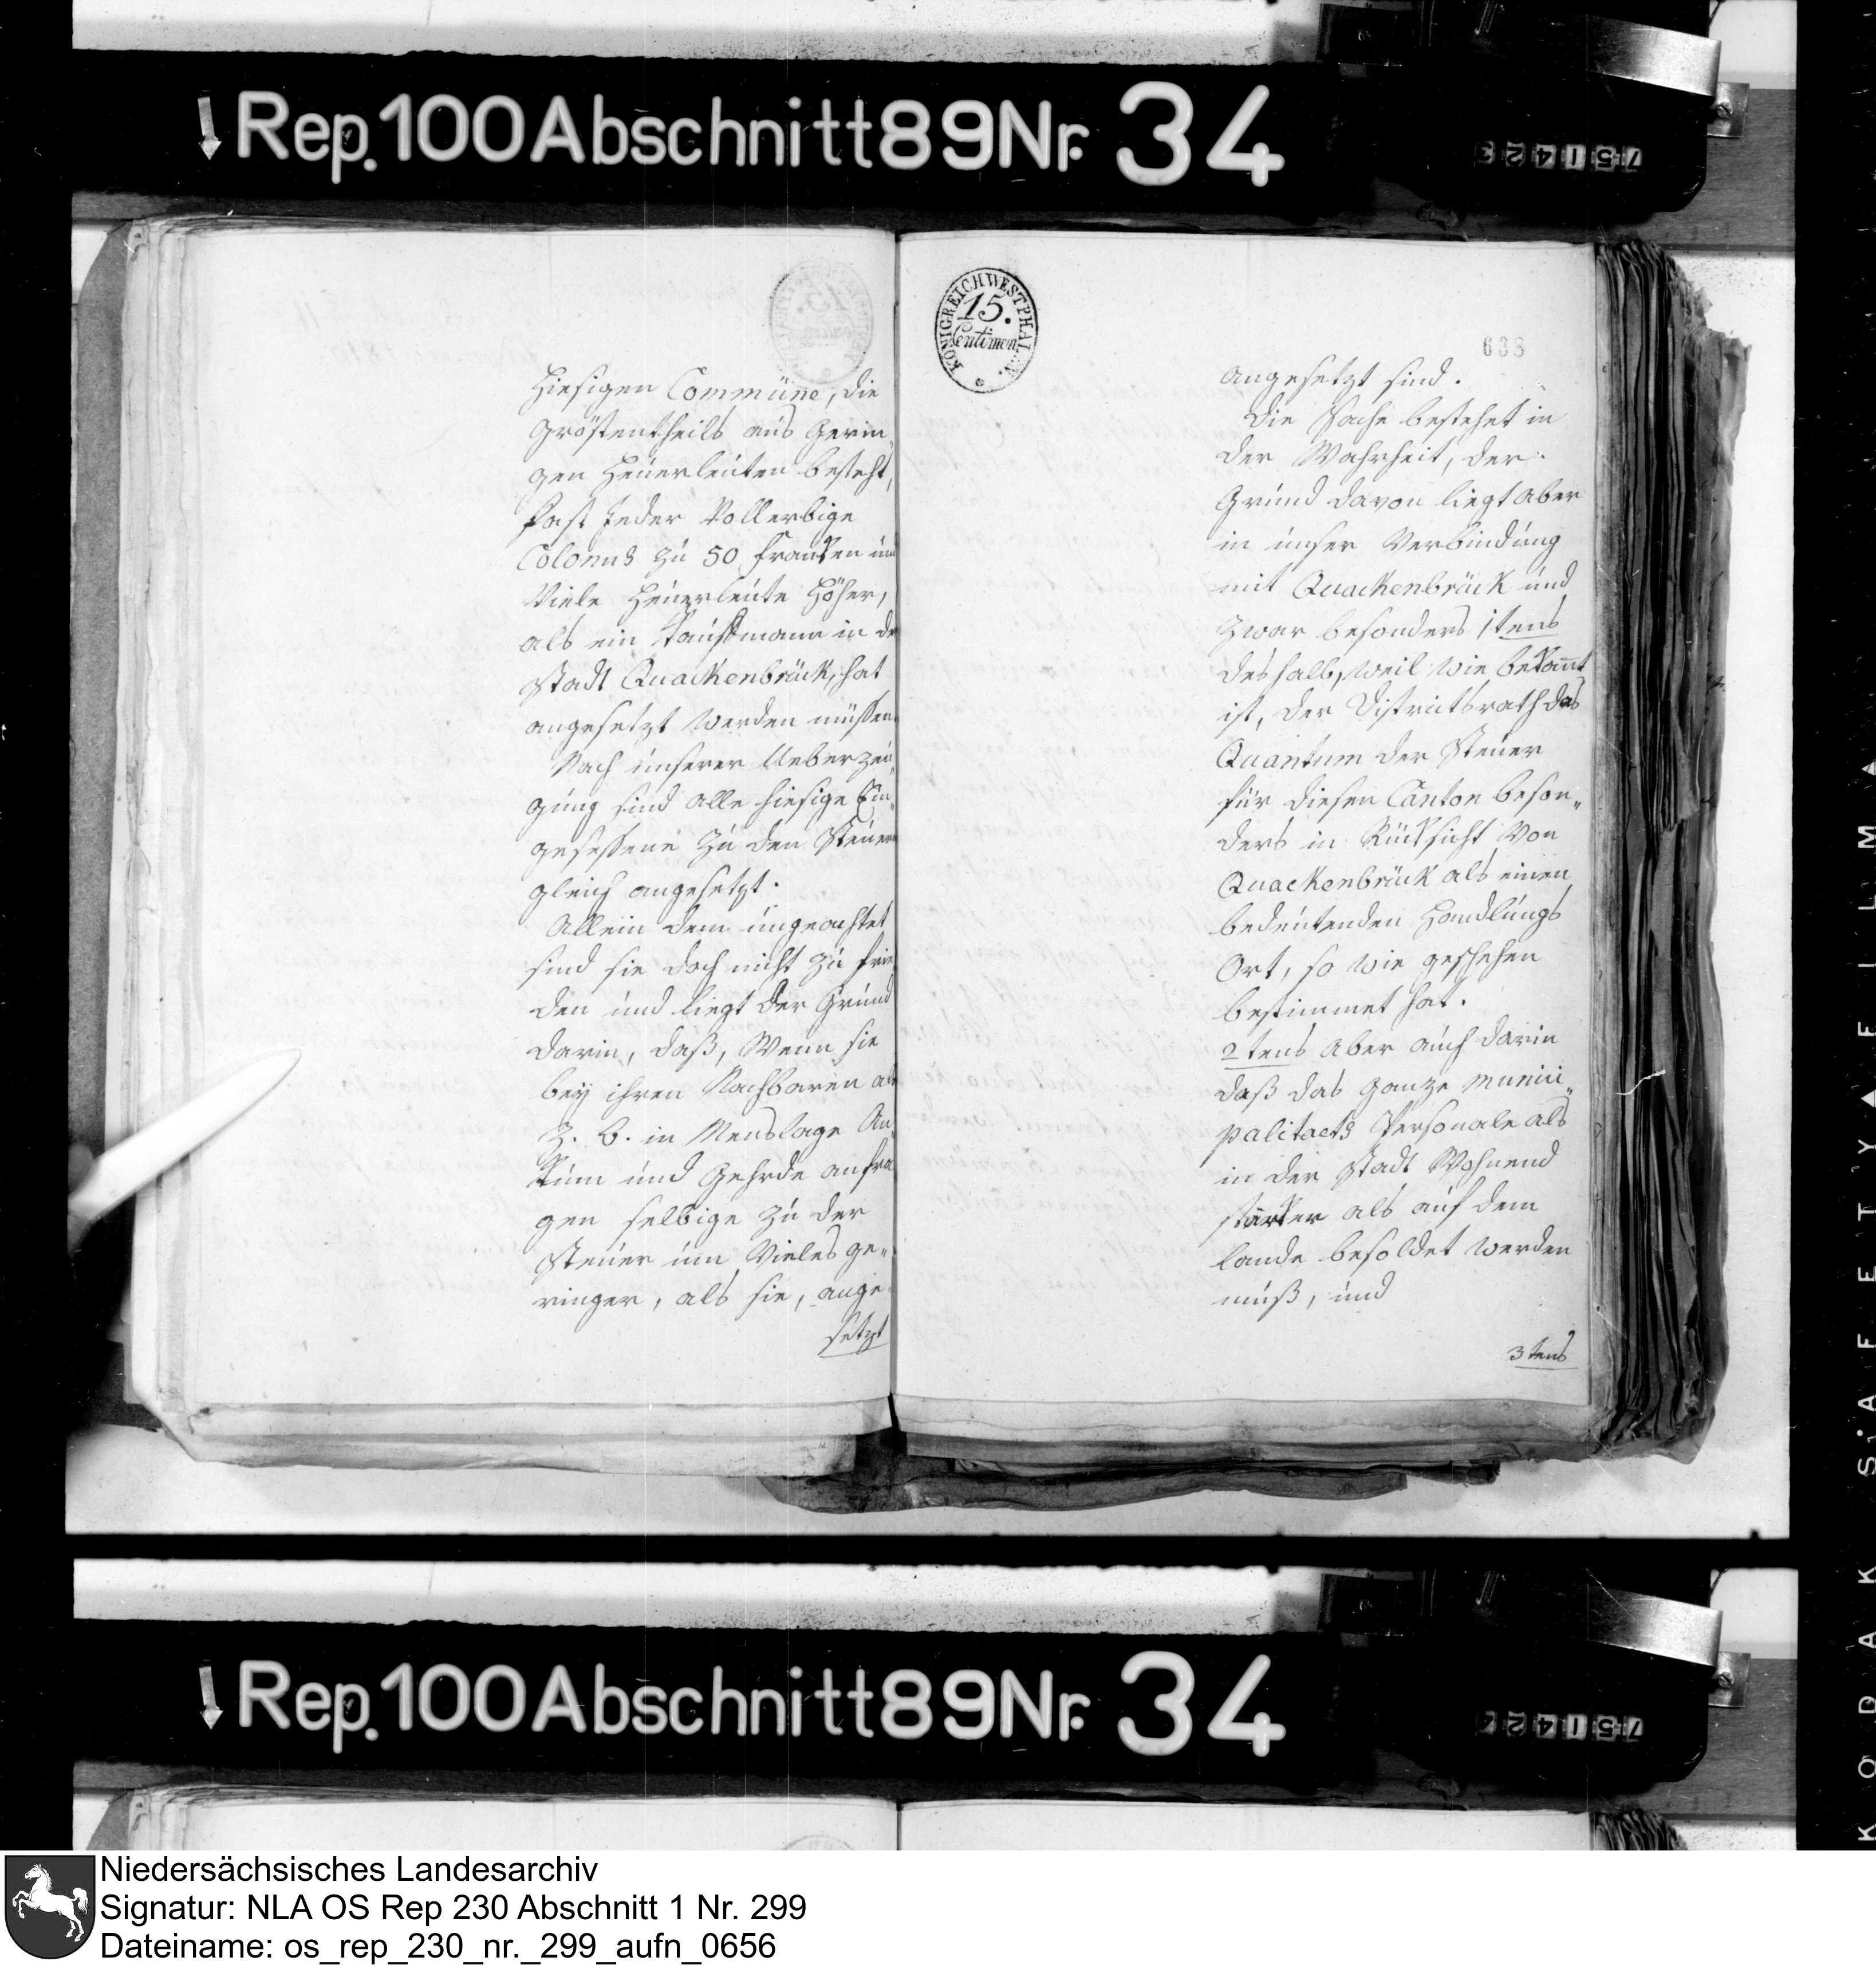 Rep. 100 Abschnitt 89 Nr. 34
751423
hiesigen Commüne, die
gröstentheils aus gerin„
gen Heuerleuten besteht,
fast jeder Vollerbige
Colonus zu 50 Franken und
Viele Heuerleute höher,
als ein Kaufmann in der
Stadt Quackenbrück, hat
angesetzt werden müssen.
Nach unserer Ueberzeu„
gung sind alle hiesige Ein„
gesessene zu den Steuern
gleich angesetzt.
Allein dem ungeachtet
sind sie doch nicht zu frie
den und liegt der Grund
darin, daß, Wenn sie
bey ihren Nachbaren als
z. B. in Menslage An„
kum und Gehrde anfra
gen selbige zu der
Steuer um Vieles ge„
ringer, als sie, ange
setzt
KÖNIGREICH WESTPHALEN.
15.
Centimen
638
angesetzt sind.
Die Sache bestehet in
der Wahrheit, der
Grund davon liegt aber
in unser Verbindung
mit Quackenbrück und
zwar besonders 1tens
deshalb, weil wie bekannt
ist, der Districtsrath das
Quantum der Steuer
für diesen Canton beson„
ders in Rücksicht Von
Quackenbrück als einen
bedeutenden Handlungs
Ort, so wie geschehen
bestimmet hat.
2tens aber auch darin
daß das ganze Munici„
palitaets Personale als
in der Stadt Wohnend
stärker als auf dem
lande besoldet werden
muß, und
3tens
Rep. 100 Abschnitt 89 Nr. 34
KODAK SAFETY FILM
Niedersächsisches Landesarchiv
Signatur: NLA OS Rep 230 Abschnitt 1 Nr. 299
Dateiname: os_rep_230_nr._299_aufn_0656